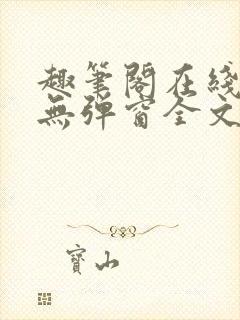 趣筆閣在綫
無彈窗全文
寶山